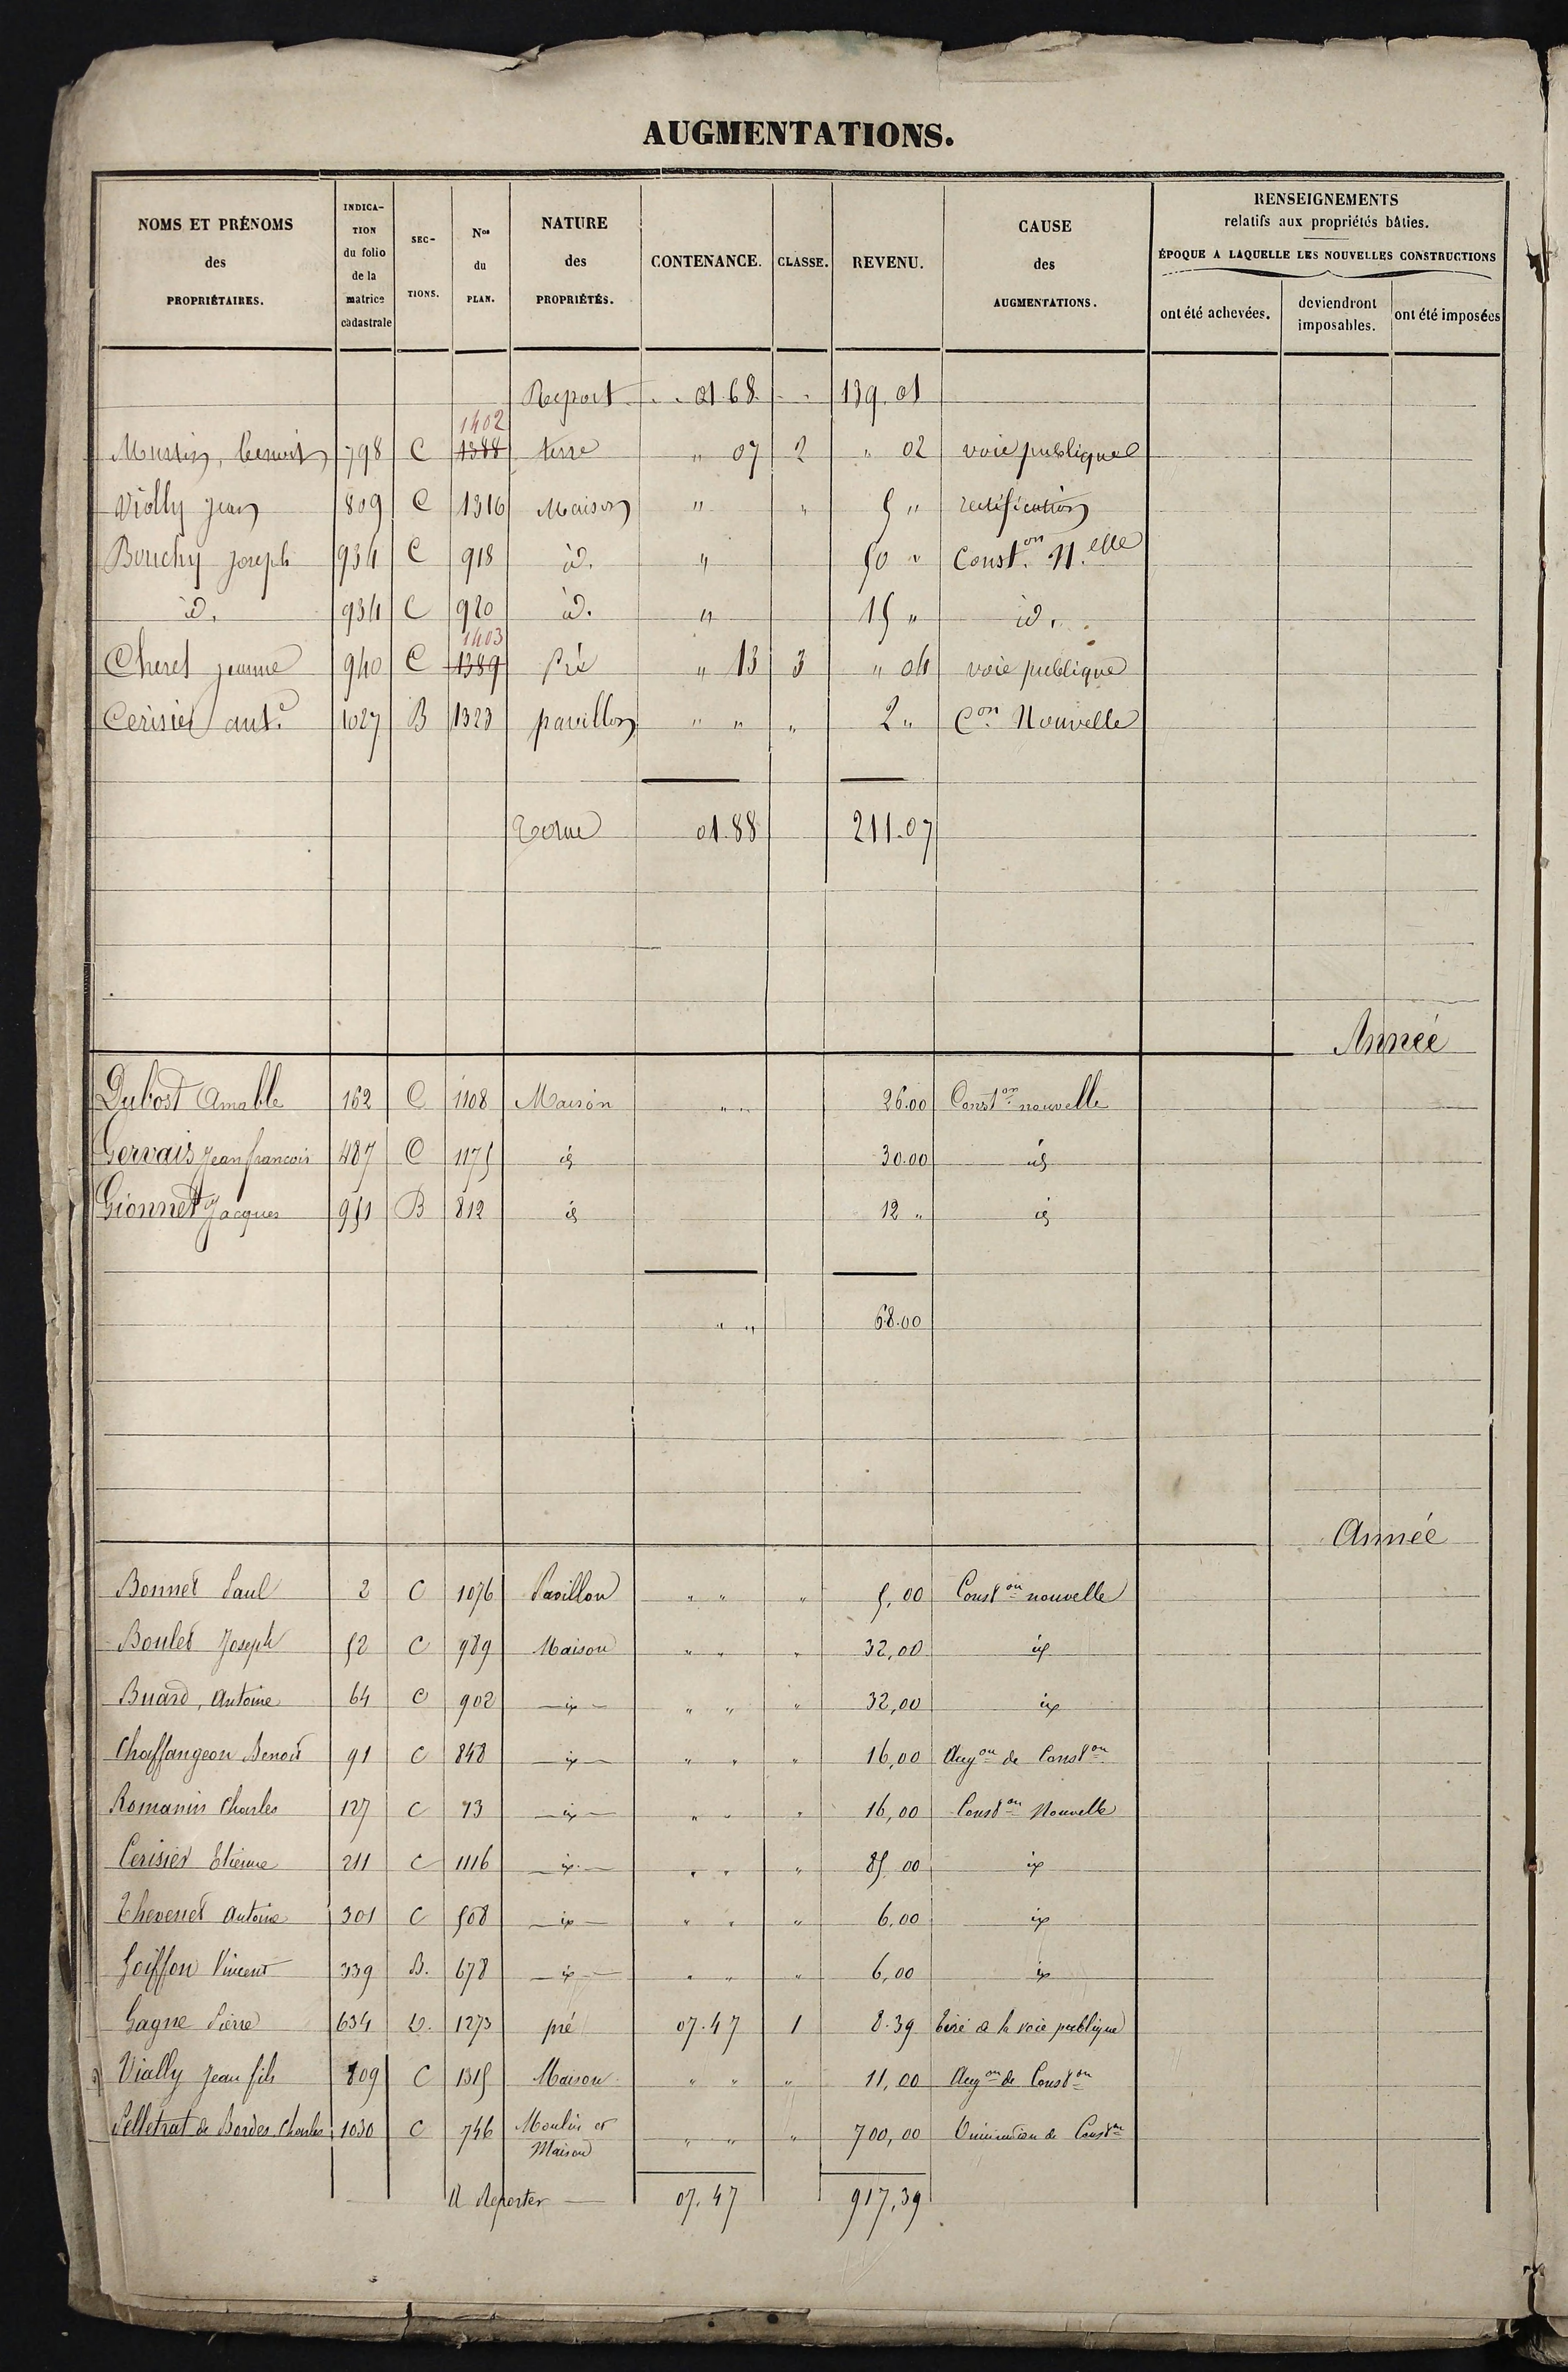 AUGMENTATIONS.
NOMS ET PRÉNOMS des PROPRIÉTAIRES. | INDICATION du folio de la matrice cadastrale | SECTIONS. | Nos du PLAN. | NATURE des PROPRIÉTÉS. | CONTENANCE. | CLASSE. | REVENU. | CAUSE des AUGMENTATIONS. | RENSEIGNEMENTS relatifs aux propriétés bâties.
ÉPOQUE A LAQUELLE LES NOUVELLES CONSTRUCTIONS
ont été achevées. | deviendront imposables. | ont été imposées
Report 01.68 139.01
1402
798 C 1388 terre " 07 2 " 02 voie publique
Violly Jean 809 C 1316 Maison " " 5 " rectification
Bouchy Joseph 934 C 918 id. " 50 " Const.on N.elle
id. 934 C 920 id. " 15 " id.
1403
Cheret Jeanne 940 C 1389 Pré " 13 3 " 04 voie publique
Cerisier ant.e 1027 B 1323 pavillon " " " 2 " Con Nouvelle
01.88 211.07
Année
Dubost Amable 162 C 1108 Maison " " 26.00 Conston nouvelle
Gervais Jean francois 487 C 1175 id 30.00 id
Gionnet Jacques 951 B 812 id 12 " id
" " 68.00
Année
Bonnet Paul 2 C 1076 Pavillon " " " 5,00 Conston nouvelle
Boulet Joseph 52 C 989 Maison " " " 32,00 id
Buard, Antoine 64 C 902 id " " " 32,00 id
Chaffangeon Benoit 91 C 848 id " " " 16,00 Augon de Conston
Romanin Charles 127 C 73 id " " " 16,00 Conston Nouvelle
Cerisier Etienne 211 C 1116 id " " " 85 00 id
Thevenet Antoine 301 C 508 id " " " 6,00 id
Goiffon Vincent 339 B. 678 id " " " 6,00 id
Gagne Pierre 634 1273 pré 07.47 1 8.39 tiré de la voie publique
Vially Jean fils 809 C 1315 Maison " " " 11,00 Augon de Conston
Pelletrat de Bordes Charles 1030 C 746 Moulin et Maison " " " 700,00 de Conston
A Reporter 07.47 917,39